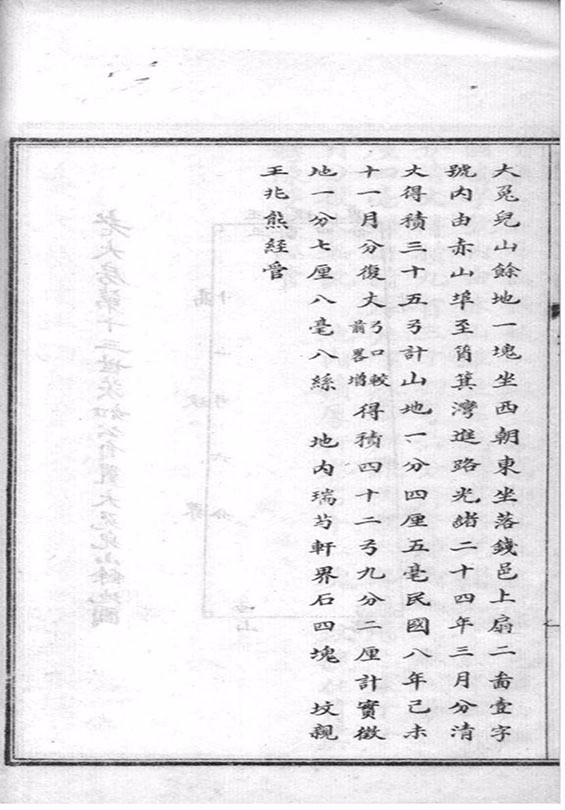 大兎兒山餘地一塊坐西朝東坐落錢邑上扇二啚壹字
號内由赤山埠至筲箕灣進路光緒二十四年三月分清
丈得積三十五弓計山地一分四厘五毫民國八年己未
十一月分復丈弓口較前畧增得積四十二弓九分二厘計實徵
地一分七厘八毫八絲 地内瑞芍軒界石四塊 坟親
王兆熊經管